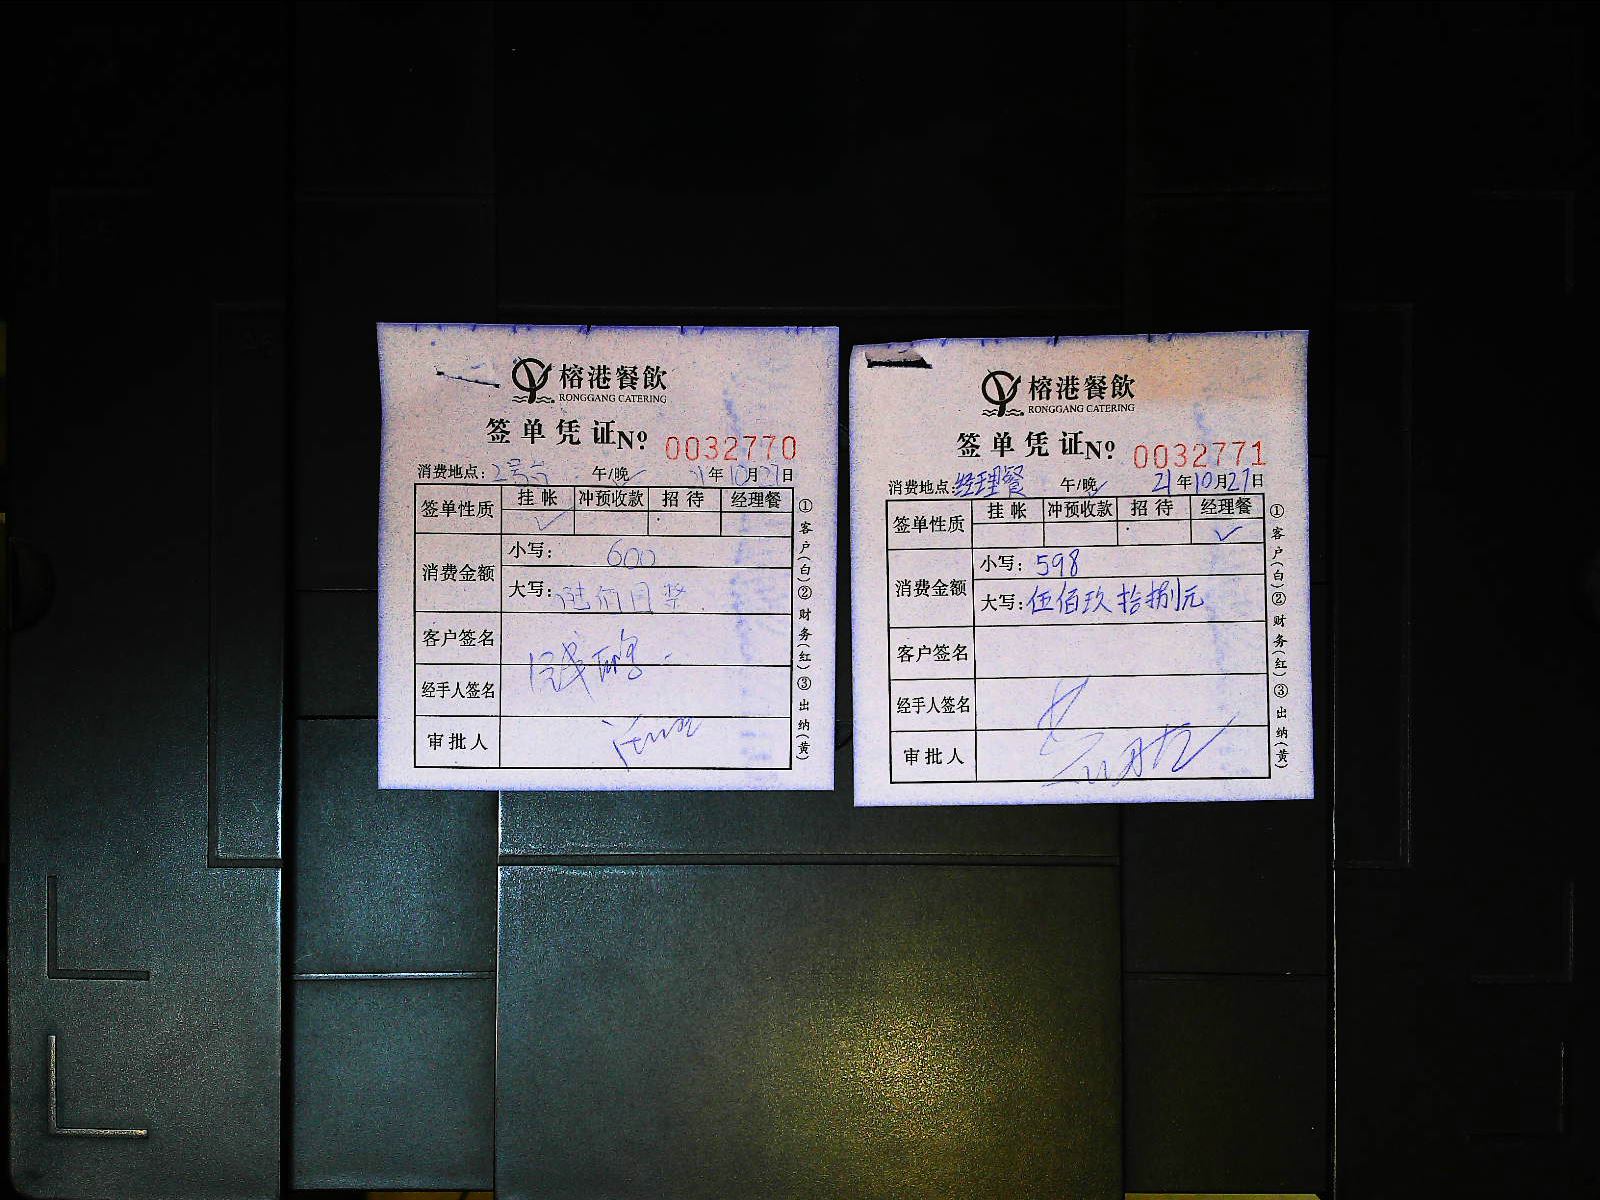 榕港餐飲
RONGGANG CATERING
签单凭证№ 0032770
消费地点: 2号 午/晚✓ 21年10月27日
签单性质 挂帐 冲预收款 招待 经理餐
✓
消费金额 小写: 600
大写: 陆佰
客户签名
经手人签名
审批人
①客户(白)②财务(红)③出纳(黄)
榕港餐飲
RONGGANG CATERING
签单凭证№ 0032771
消费地点:经理餐 午/晚✓ 21年10月27日
签单性质 挂帐 冲预收款 招待 经理餐
✓
消费金额 小写: 598
大写: 伍佰玖拾捌元
客户签名
经手人签名
审批人
①客户(白)②财务(红)③出纳(黄)